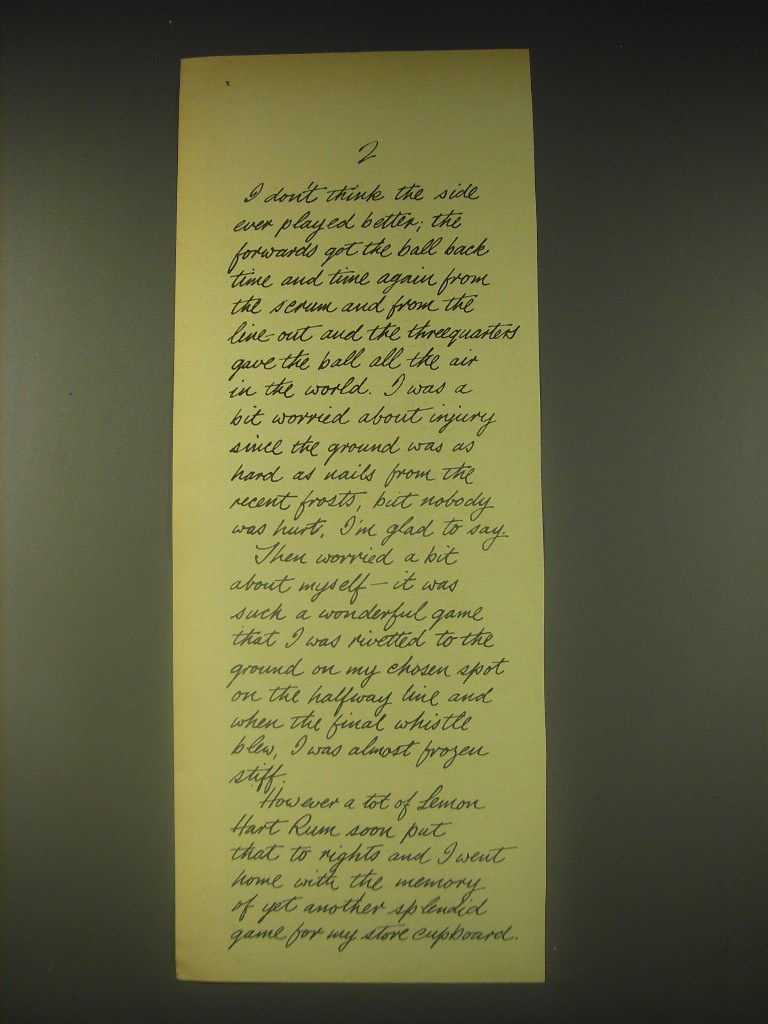 2
I don't think the side
ever played better; the
forwards got the ball back
time and time again from
the scrum and from the
line-out and the threequarters
gave the ball all the air
in the world. I was a
bit worried about injury
since the ground was as
hard as nails from the
recent frosts, but nobody
was hurt, I'm glad to say.
Then worried a bit
about myself — it was
such a wonderful game
that I was rivetted to the
ground on my chosen spot
on the halfway line and
when the final whistle
blew, I was almost frozen
stiff.
However a tot of Lemon
Hart Rum soon put
that to rights and I went
home with the memory
of yet another splendid
game for my store cupboard.